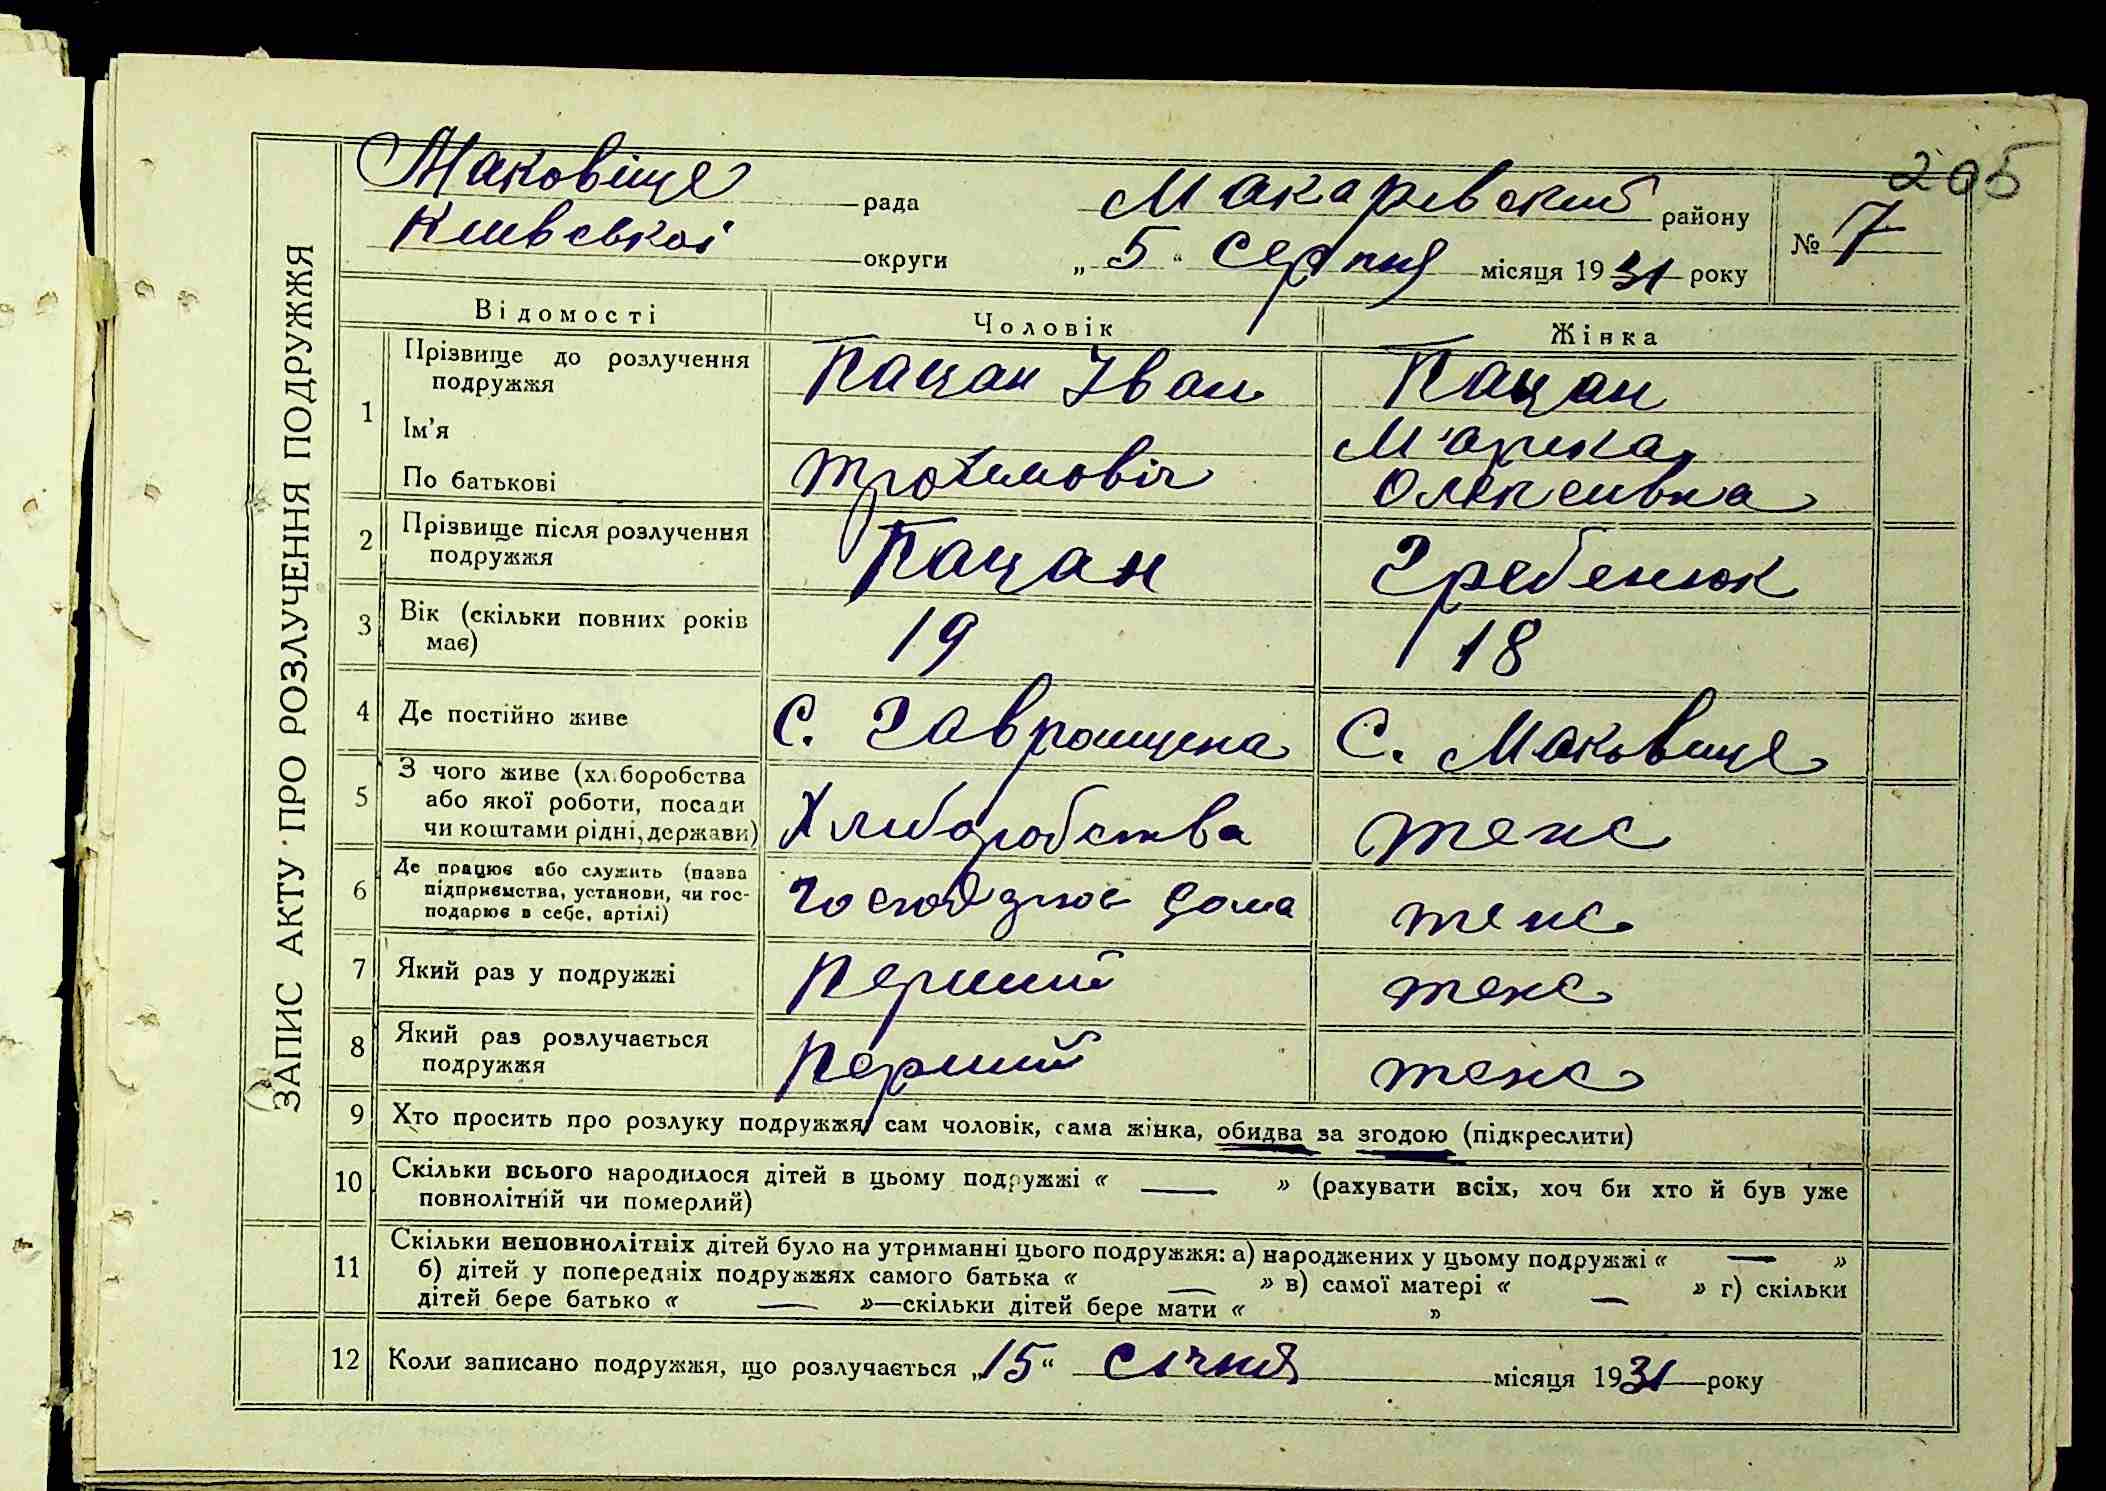 205
Маковіще рада Макаревский району № 7
Киевськоі округи „ 5 “ Серпня місяця 1931 року
ЗАПИС АКТУ ПРО РОЗЛУЧЕННЯ ПОДРУЖЖЯ
Відомості Чоловік Жінка
1 Прізвище до розлучення подружжя Пацан Іван Пацан
Ім’я Марика
По батькові Трохимовіч Олексивна
2 Прізвище після розлучення подружжя Пацан Гребенюк
3 Вік (скільки повних років має) 19 18
4 Де постійно живе С. Гавронщена С. Маковище
5 З чого живе (хліборобства
або якої роботи, посади
чи коштами рідні, держави) Хлиборобства теж
6 Де працює або служить (назва
підприємства, установи, чи гос-
подарює в себе, артілі) дома
7 Який раз у подружжі Перший
8 Який раз розлучається
подружжя Перший
9 Хто просить про розлуку подружжя, сам чоловік, сама жінка, обидва за згодою (підкреслити)
10 Скільки всього народилося дітей в цьому подружжі « — » (рахувати всіх, хоч би хто й був уже
повнолітній чи померлий)
11 Скільки неповнолітніх дітей було на утриманні цього подружжя: а) народжених у цьому подружжі « — »
б) дітей у попередніх подружжях самого батька « — » в) самої матері « — » г) скільки
дітей бере батько « — »—скільки дітей бере мати « »
12 Коли записано подружжя, що розлучається „15“ січня місяця 1931 року